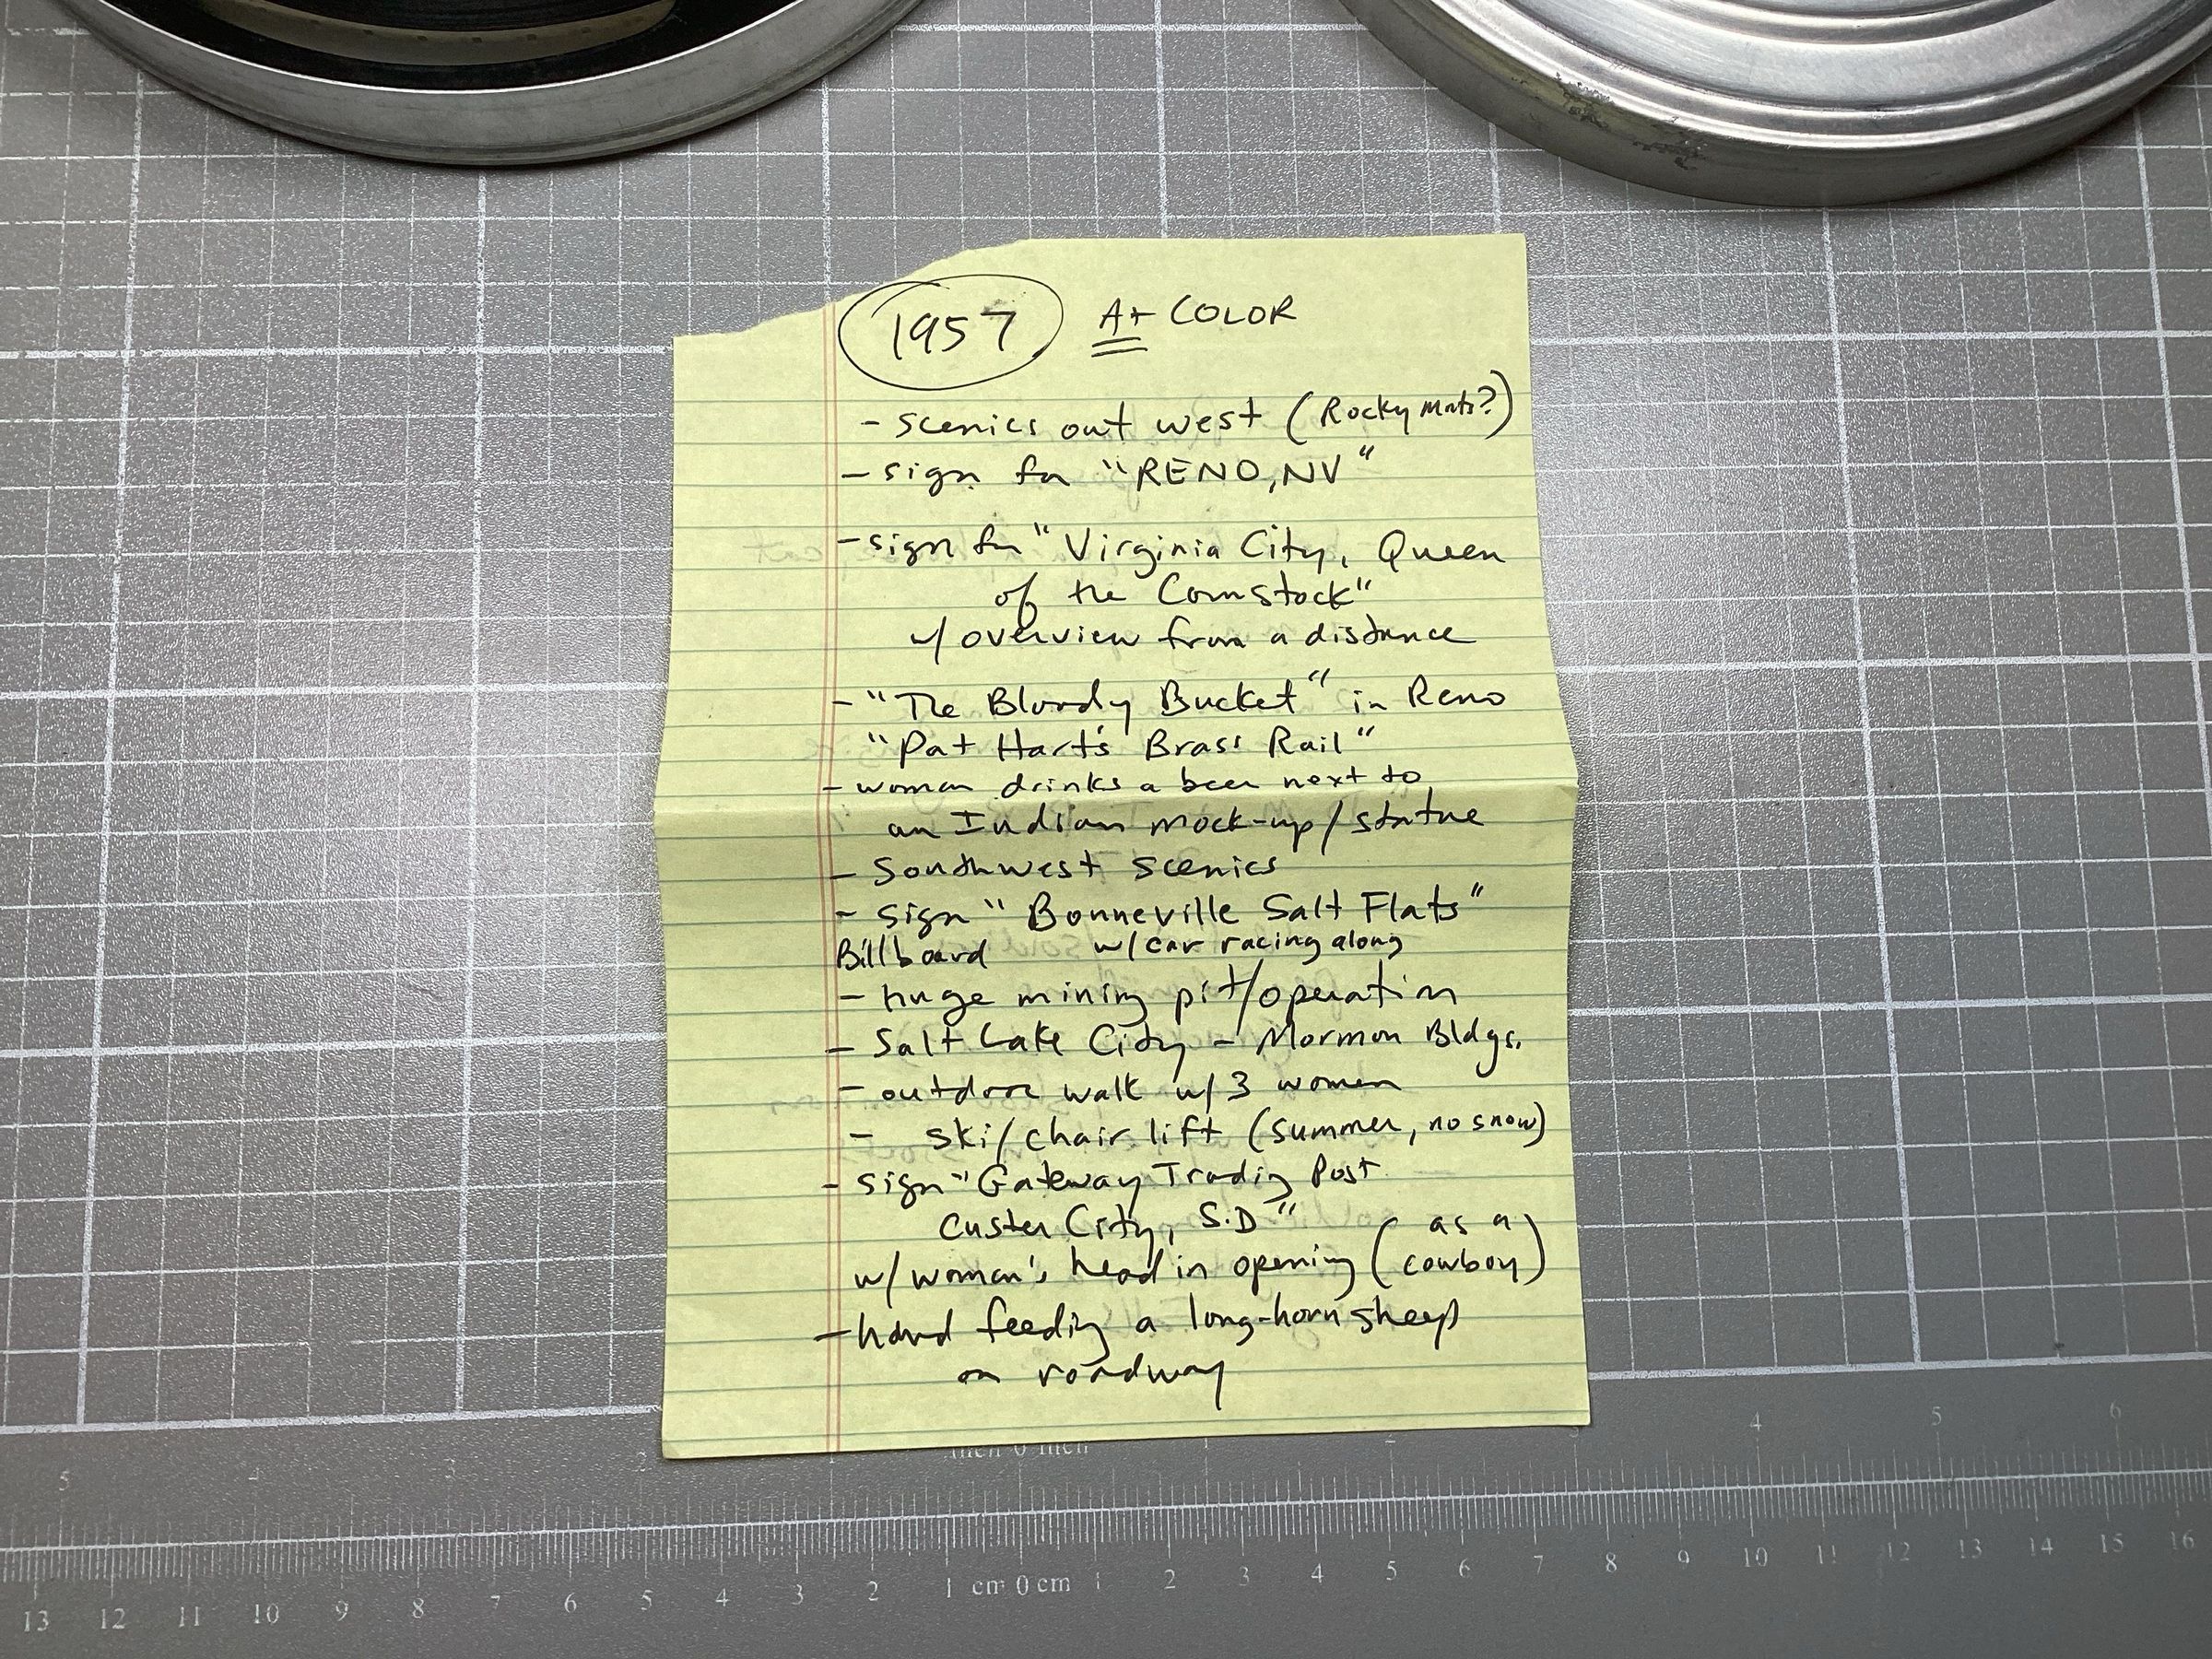 1957 A+ COLOR
- scenics out west (Rocky mnts?)
- sign for "RENO, NV"
- sign for "Virginia City, Queen
of the Comstock"
w/ overview from a distance
- "The Bloody Bucket" in Reno
"Pat Hart's Brass Rail"
- woman drinks a beer next to
an Indian mock-up/statue
- Southwest scenics
- sign "Bonneville Salt Flats"
Billboard w/car racing along
- huge mining pit/operation
- Salt Lake City - Mormon Bldgs.
- outdoor walk w/ 3 women
- ski/chair lift (summer, no snow)
- sign "Gateway Trading Post
Custer City, S.D"
w/woman's head in opening (as a cowboy)
- hand feeding a long-horn sheep
on roadway
5 4 3 2 1 inch 0 inch 1 2 3 4 5 6
13 12 11 10 9 8 7 6 5 4 3 2 1 cm 0 cm 1 2 3 4 5 6 7 8 9 10 11 12 13 14 15 16